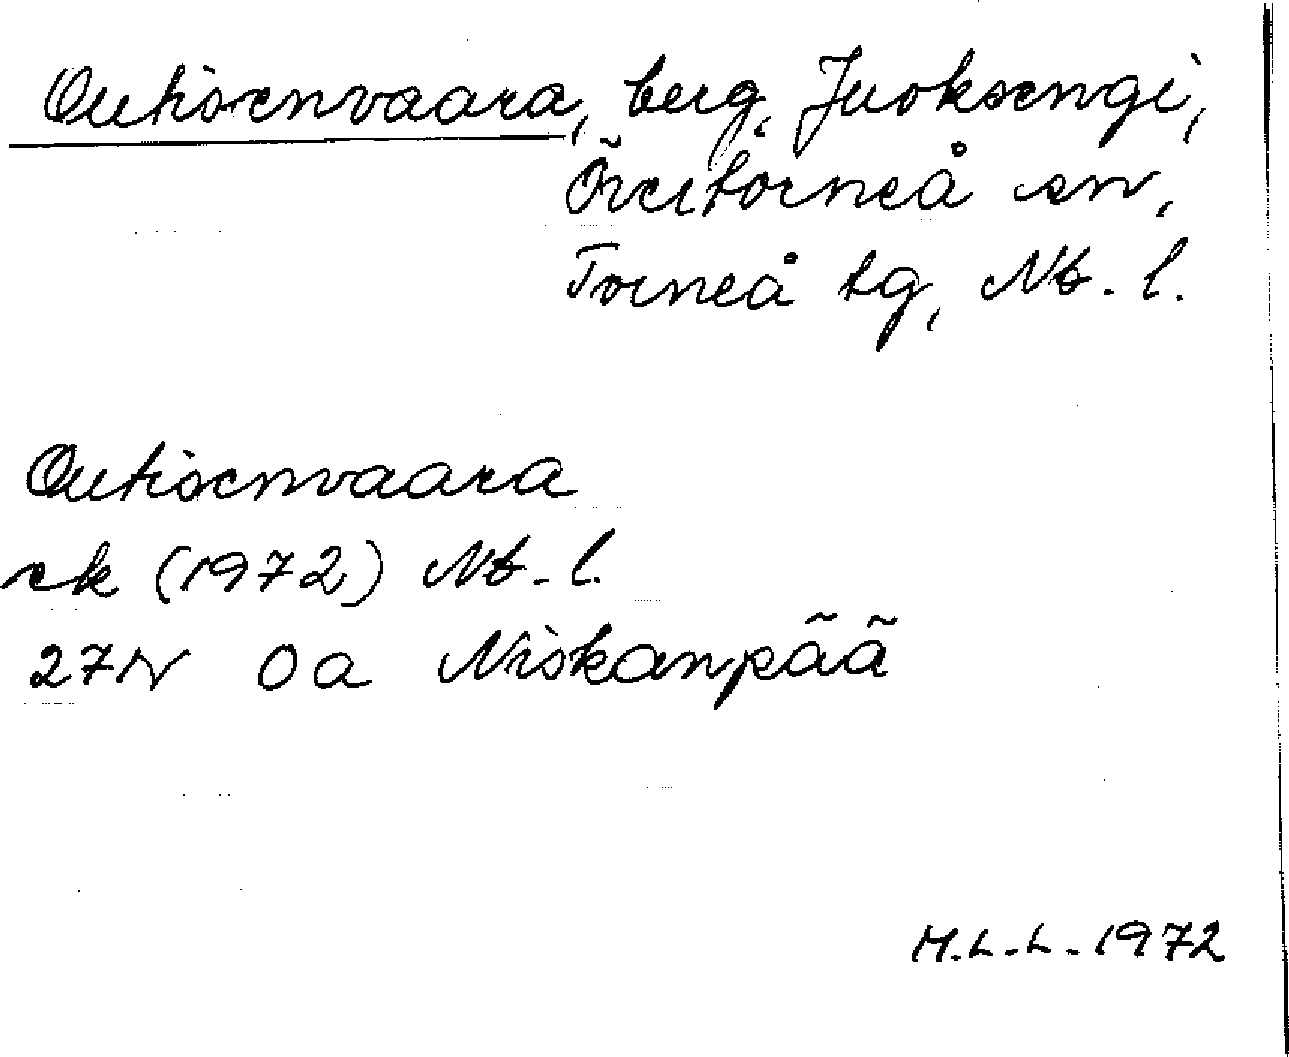 Outisenvaara, berg, Juoksengi,
Övertorneå sn,
Torneå tg, Nb. l.
Outisenvaara
ek (1972) Nb. l.
27N 0a Niskanpää
M.L.L. 1972